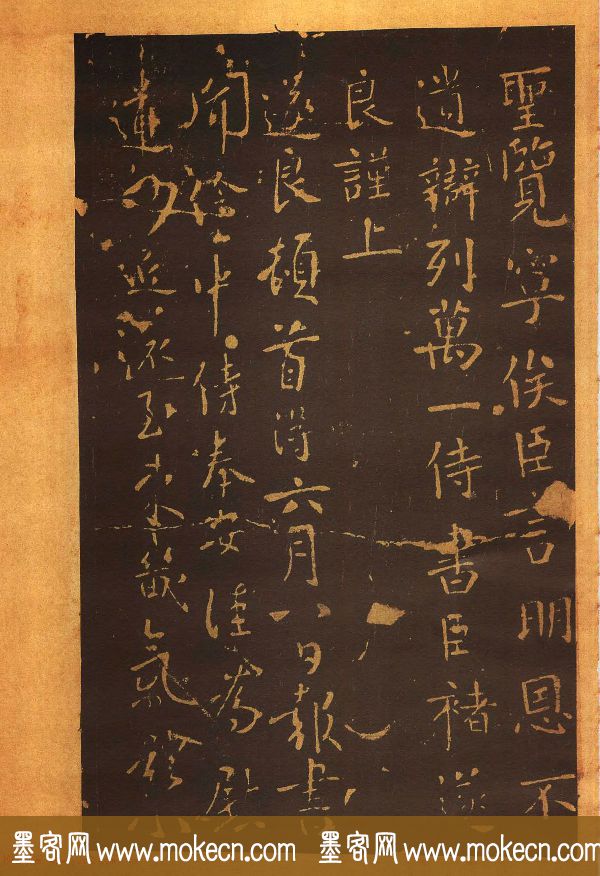 聖覽寧俟臣言明恩不
辯列萬一侍書臣褚遂
良謹上
遂良頓首得六月八日報書
中侍奉安佳為慰
近至氣
墨客网 www.mokecn.com 墨客网 www.mokecn.com